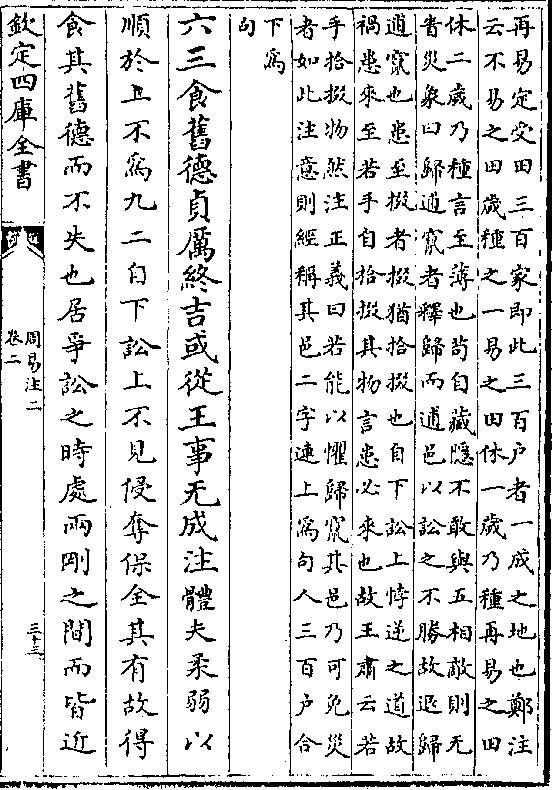 再易定受田三百家即此三百户者一成之地也鄭注
云不易之田歲種之一易之田休一歲乃種再易之田
休二歲乃種言至薄也苟自藏隱不敢與五相敵則无
眚災象曰歸逋竄者釋歸而逋邑以訟之不勝故退歸
逋竄也患至掇者掇猶拾掇也自下訟上悖逆之道故
禍患來至若手自拾掇其物言患必來也故王肅云若
手拾掇物然注正義曰若能以懼歸竄其邑乃可免災
者如此注意則經稱其邑二字連上爲句人三百户合
下爲
句
六三食舊德貞厲終吉或從王事无成注體夫柔弱以
順於上不爲九二自下訟上不見侵奪保全其有故得
食其舊德而不失也居爭訟之時處兩剛之間而皆近
欽定四庫全書
周易注二
卷二
三十三